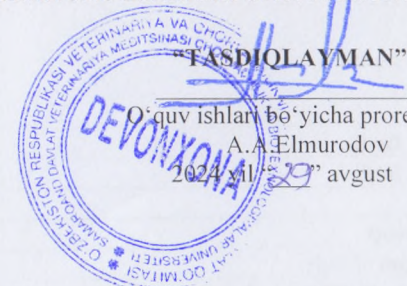 “TASDIQLAYMAN”
O‘quv ishlari bo‘yicha prore
A.A.Elmurodov
2024 yil “29” avgust
DEVONXONA
O‘ZBEKISTON RESPUBLIKASI VETERINARIYA VA CHOR
SAMARQAND DAVLAT VETERINARIYA MEDITSINASI
UNIVERSITETI
QO‘MITASI